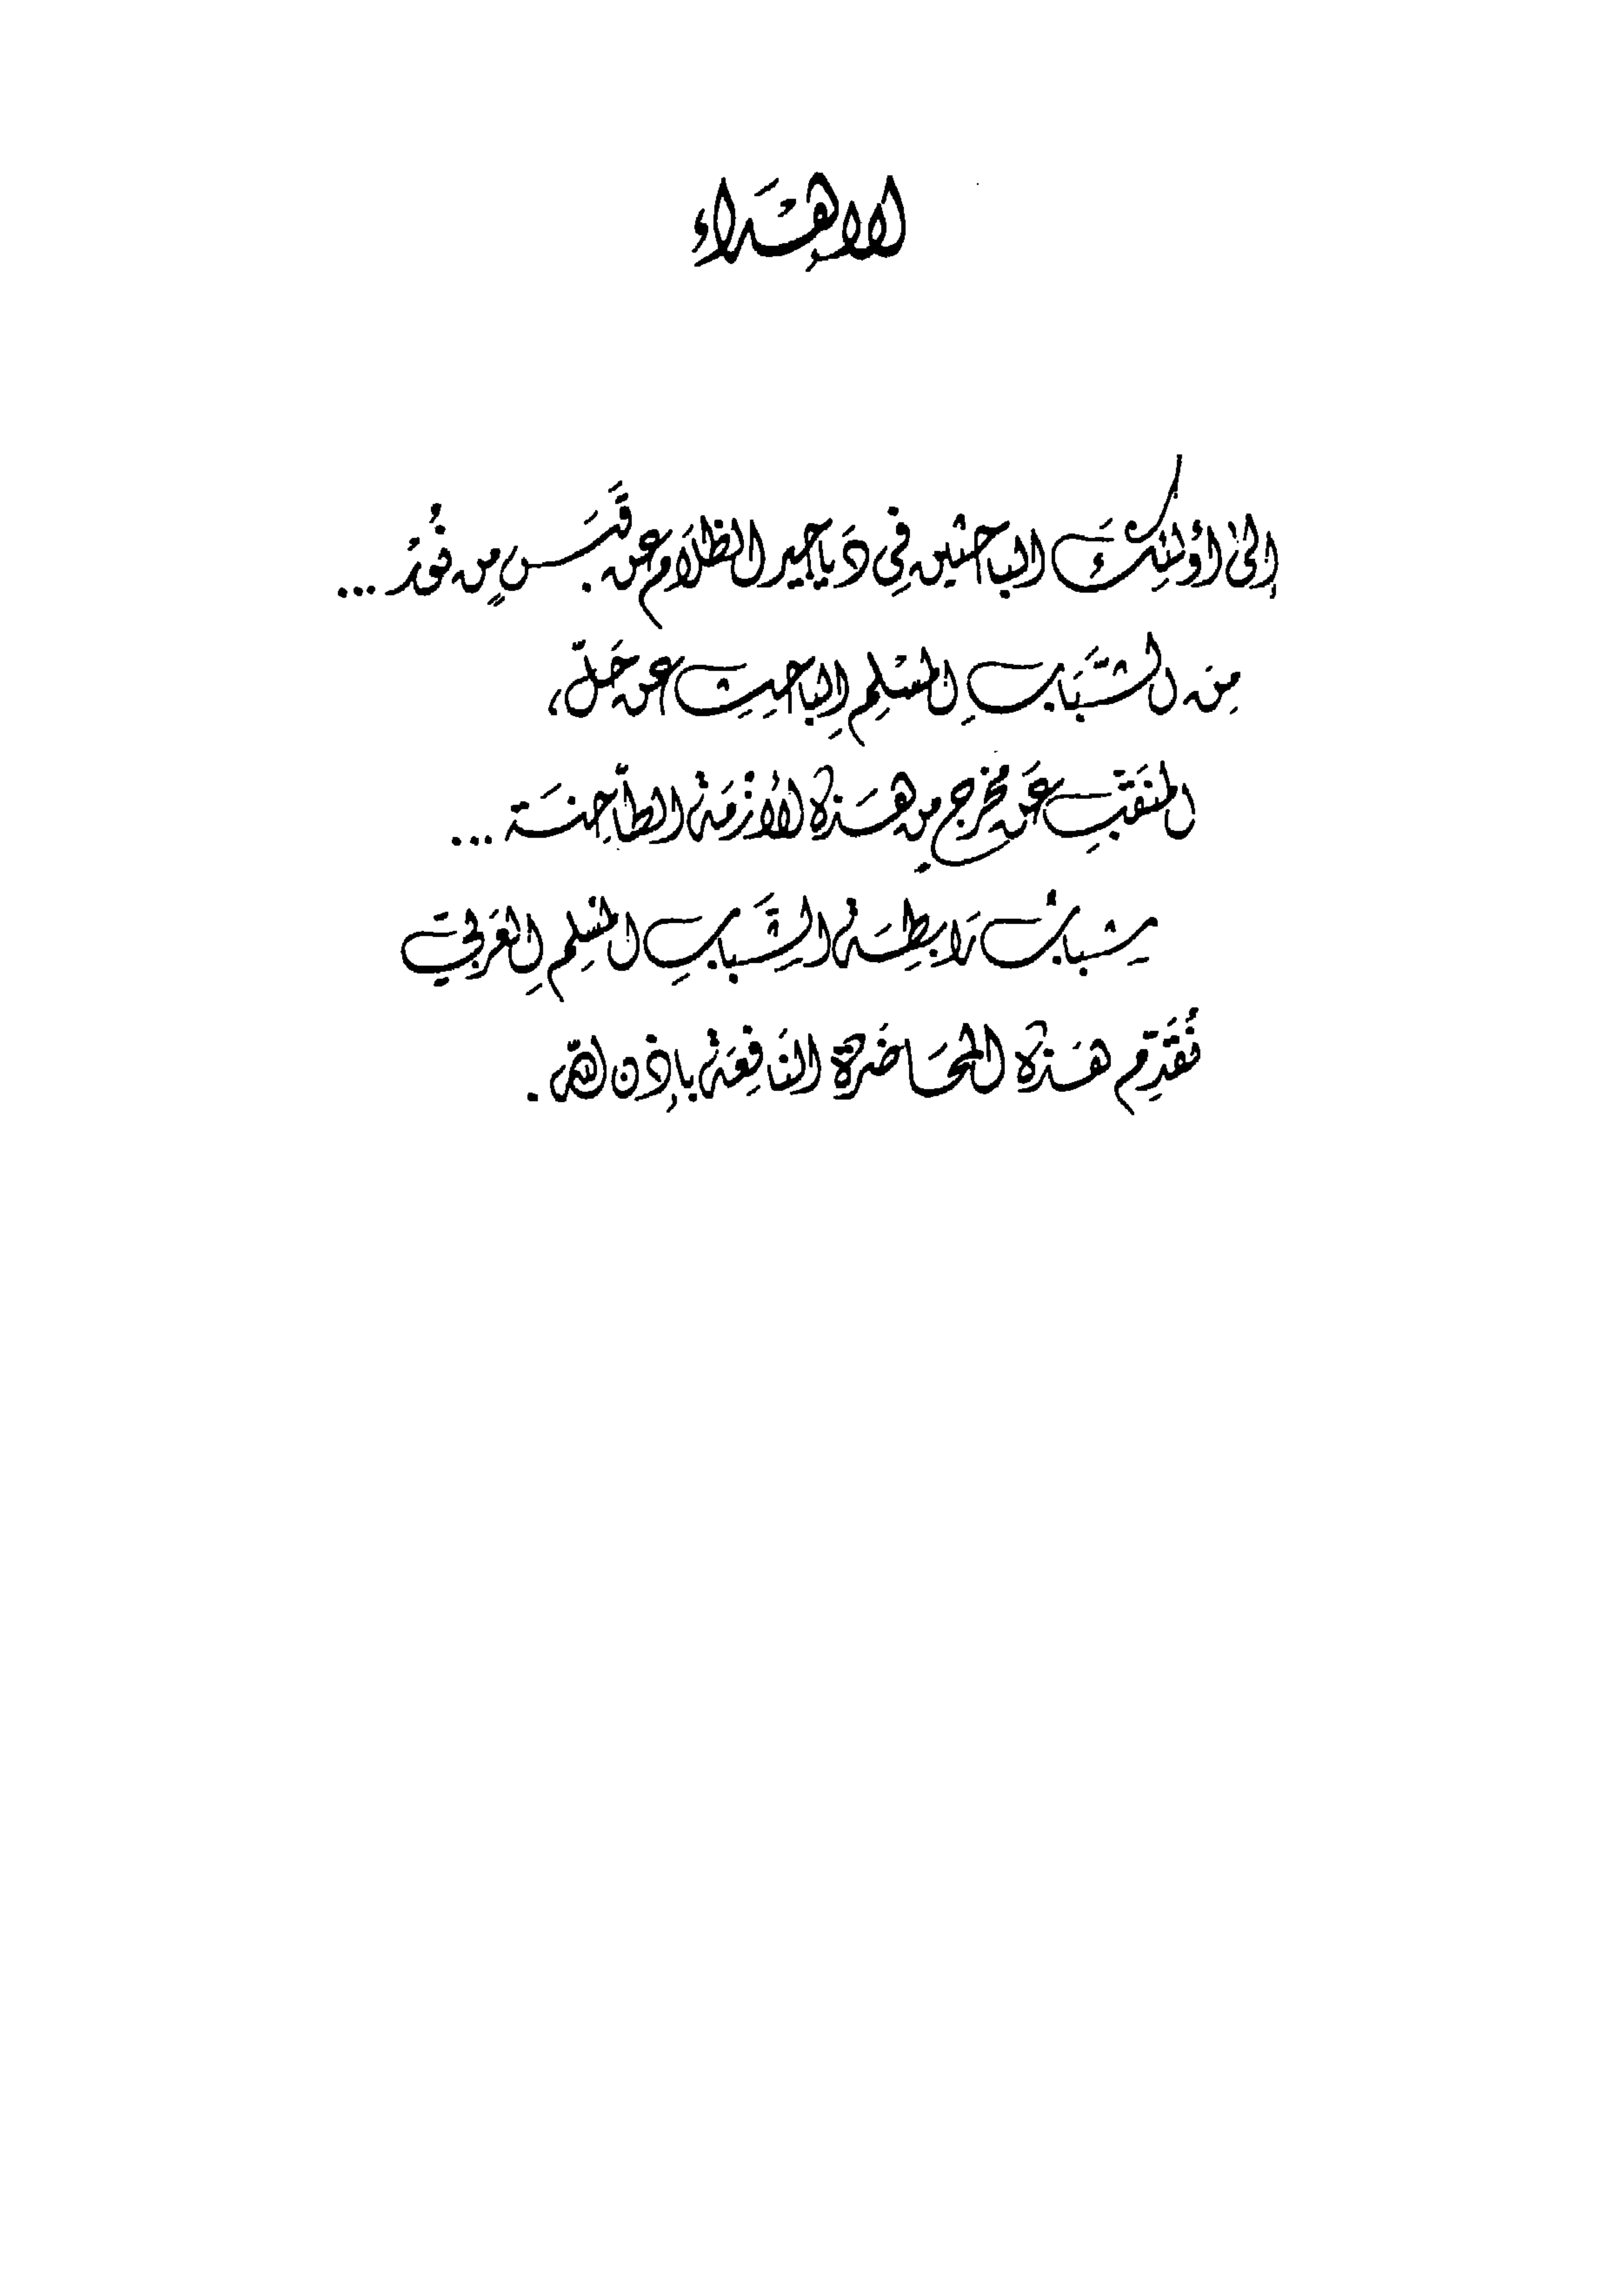 الإهْدَاء
إلى أولئِكَ الباحثين فِي دَياجير الظلَام عن قَبَسٍ من نُورْ ...
مِن الشَّبَابِ المسْلِمِ الباحِثِ عن حَلّ،
المنَقِّبِ عَن مخرجٍ من هَذه الأزْمَة الطاحِنَة ...
شباب رَابطِة الشَّبابِ المسْلِمِ العَرَبيّ
نُقَدِّم هَذه المحَاضَرة النافِعَة بإذن الله .